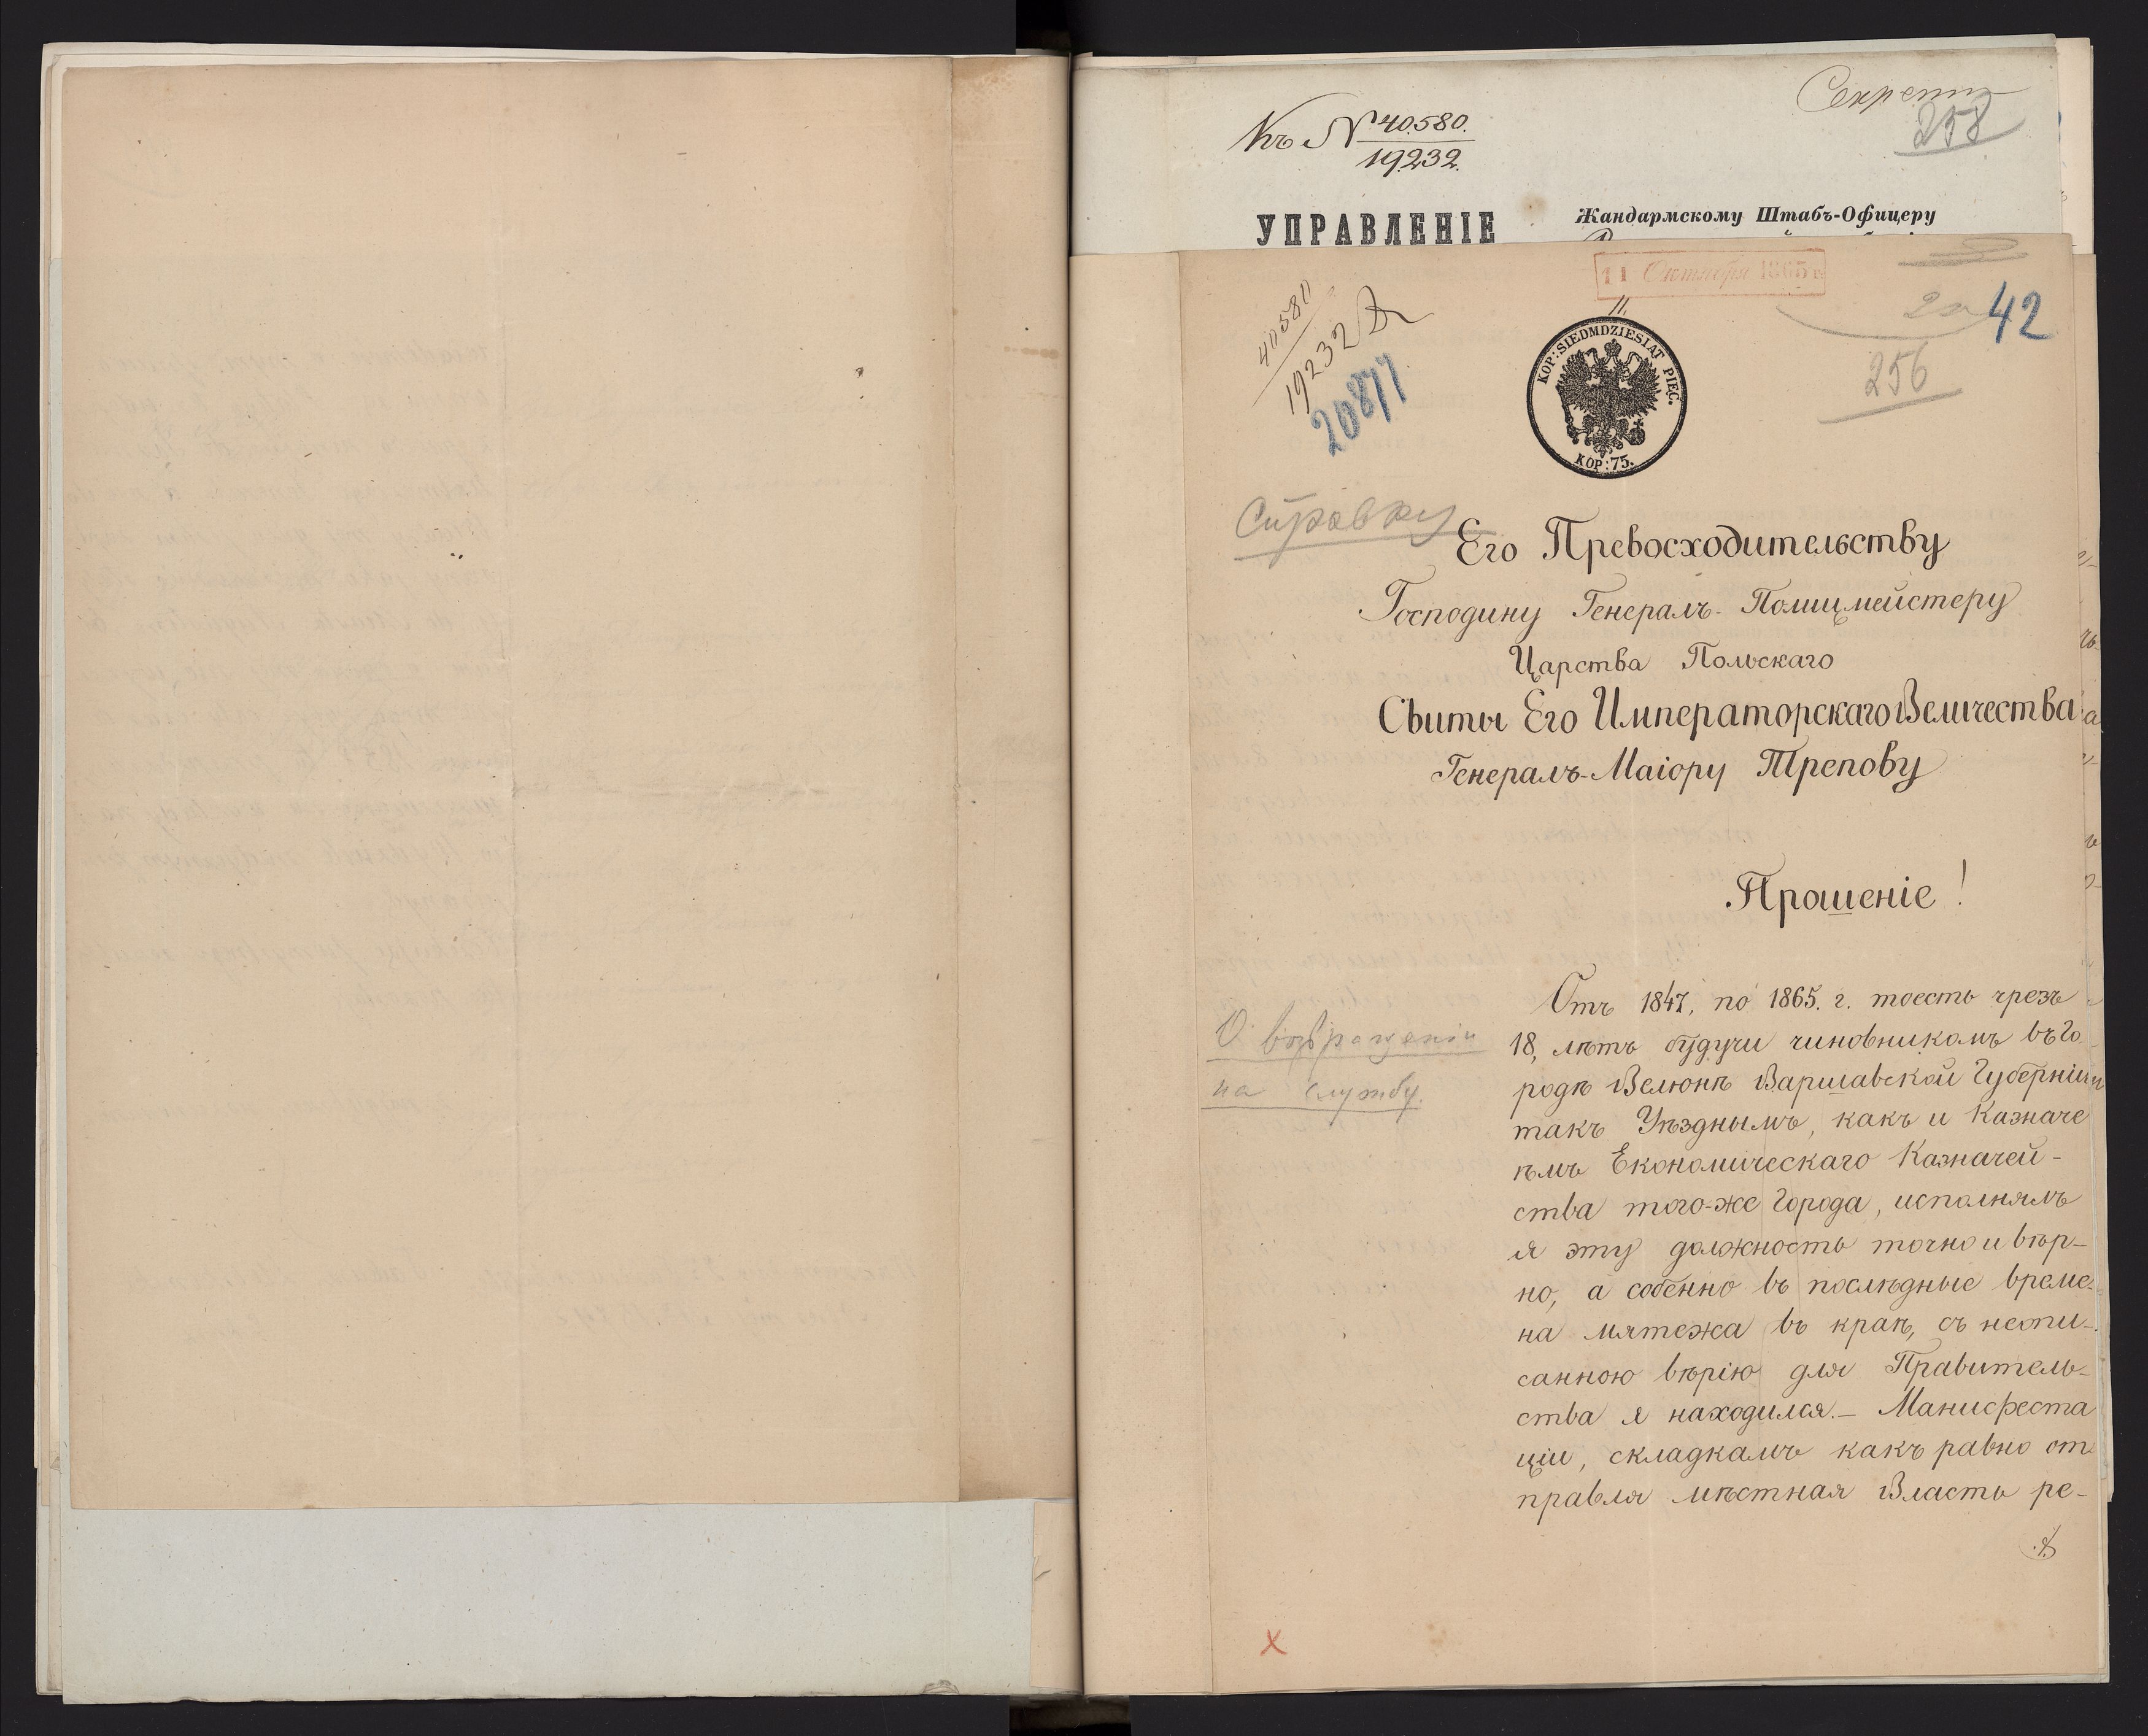 Секретно
258
Къ № 40.580.
19232.
УПРАВЛЕНІЕ
Жандармскому Штабъ-Офицеру
11 Октября 1865 г.
40580
19232
20877
42
256
KOP: SIEDMDZIESIĄT PIĘĆ.
KOP: 75.
Справку
Его Превосходительству
Господину Генералъ-Полицмейстеру
Царства Польскаго
Свиты Его Императорскаго Величества
Генералъ-Маіору Трепову
Прошеніе!
О возвращеніи
на службу.
Отъ 1847, по 1865. г. тоесть чрезъ
18, лѣтъ будучи чиновникомъ въ Го
родѣ Велюнѣ Варшавской Губерніи
такъ Уѣзднымъ, какъ и Казначе
ѣмъ Економическаго Казначей-
ства того-же Города, исполнялъ
я эту должность точно и вѣр-
но, а собенно въ послѣдные време-
на мятежа въ краѣ, съ неопи-
санною вѣрію для Правитель-
ства я находился.- Манифеста
ціи, складкамъ какъ равно от
правля мѣстная Власть ре-